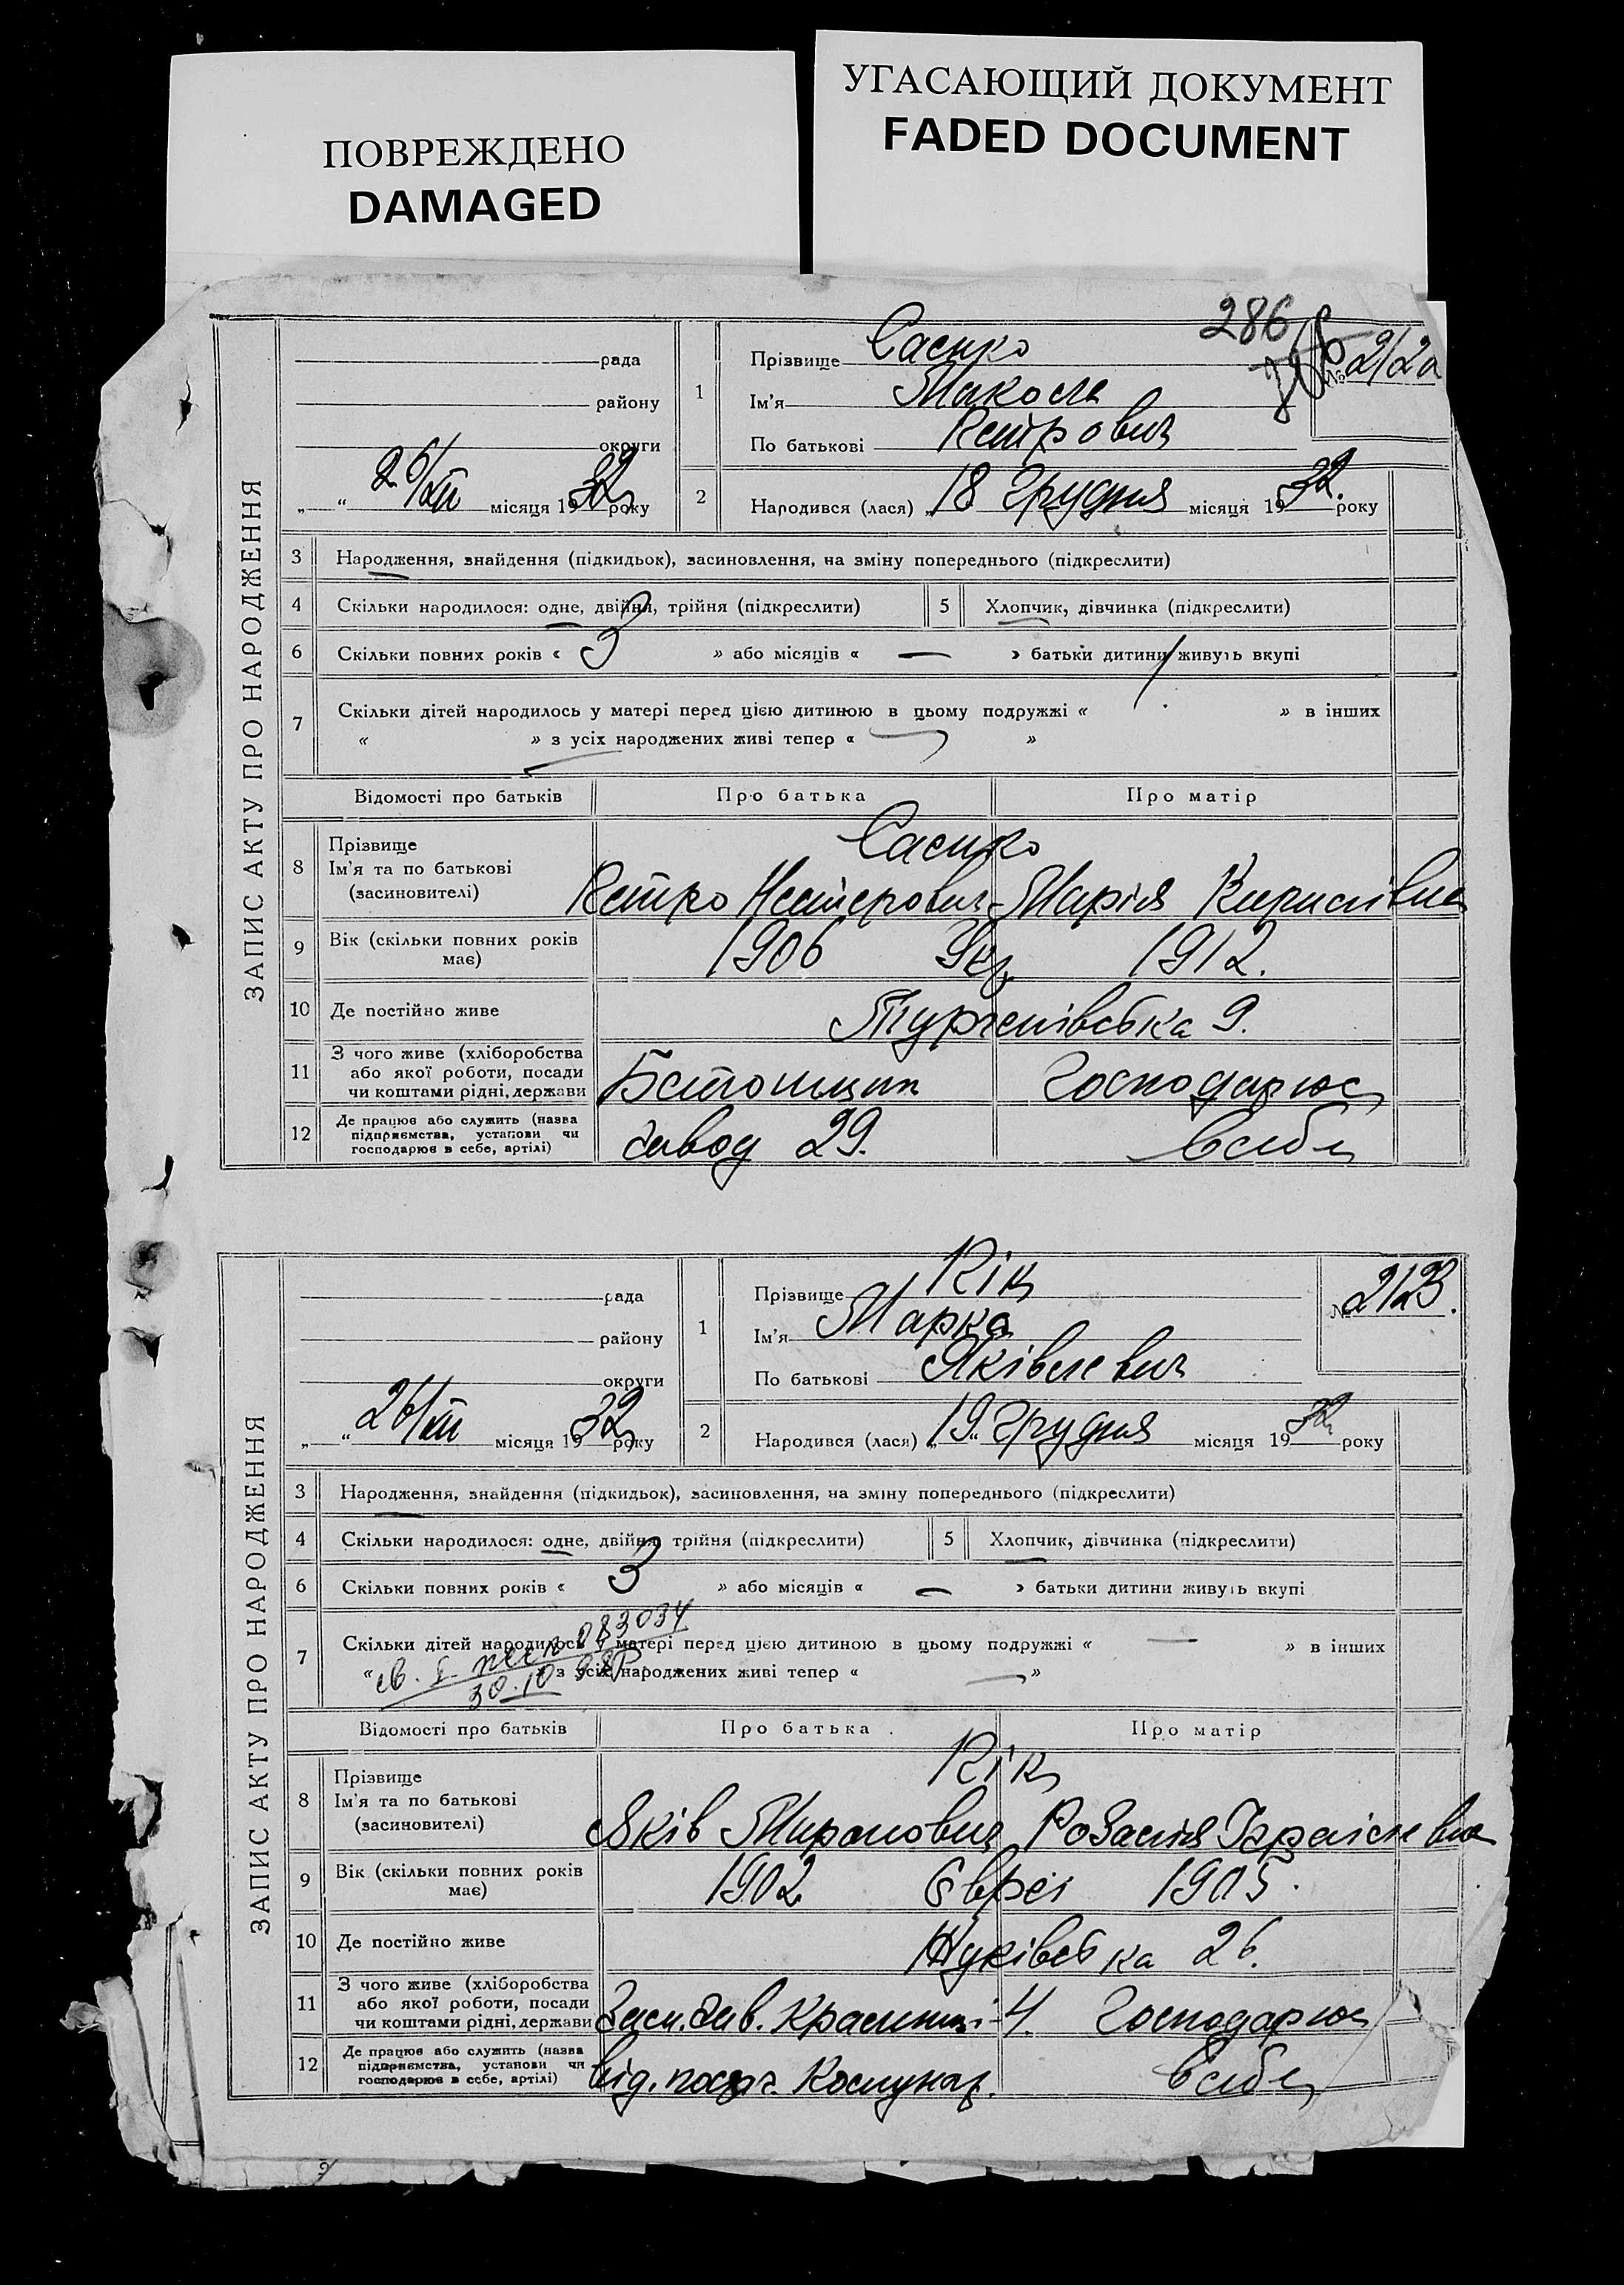 ПОВРЕЖДЕНО
DAMAGED
УГАСАЮЩИЙ ДОКУМЕНТ
FADED DOCUMENT
286
ЗАПИС АКТУ ПРО НАРОДЖЕННЯ
рада
району
округи
„ “ 26/XII місяця 1932 року
1
Прізвище Саєнко
Ім'я Микола
По батькові Петрович
№ 2122
2
Народився (лася) „18“ грудня місяця 1932. року
3 Народження, знайдення (підкидьок), засиновлення, на зміну попереднього (підкреслити)
4 Скільки народилося: одне, двійня, трійня (підкреслити)
5 Хлопчик, дівчинка (підкреслити)
6 Скільки повних років « 3 » або місяців « — » батьки дитини живуть вкупі
7 Скільки дітей народилось у матері перед цією дитиною в цьому подружжі « » в інших
« » з усіх народжених живі тепер « »
Відомості про батьків Про батька Про матір
8 Прізвище Саєнко
Ім'я та по батькові
(засиновителі) Петро Нестерович Марія Кирилівна
9 Вік (скільки повних років має) 1906 Укр 1912.
10 Де постійно живе Тургенівська 9.
11 З чого живе (хліборобства
або якої роботи, посади
чи коштами рідні, держави Бетонщик Господарює
12 Де працює або служить (назва
підприємства, установи чи
господарює в себе, артілі) Завод 29. в себе
ЗАПИС АКТУ ПРО НАРОДЖЕННЯ
рада
району
округи
„ “ 26/XII місяця 1932 року
1
Прізвище Рік
Ім'я Марко
По батькові Яківлевич
№ 2123.
2
Народився (лася) „19“ грудня місяця 1932 року
3 Народження, знайдення (підкидьок), засиновлення, на зміну попереднього (підкреслити)
4 Скільки народилося: одне, двійня, трійня (підкреслити)
5 Хлопчик, дівчинка (підкреслити)
6 Скільки повних років « 3 » або місяців « — » батьки дитини живуть вкупі
7 Скільки дітей народилось у матері перед цією дитиною в цьому подружжі « — » в інших
« » з усіх народжених живі тепер « — »
083034
30.10
Відомості про батьків Про батька Про матір
8 Прізвище Рік
Ім'я та по батькові
(засиновителі) Яків Миронович Розалія Ізраілевна
9 Вік (скільки повних років має) 1902 Євреї 1905.
10 Де постійно живе Жуківська 26.
11 З чого живе (хліборобства
або якої роботи, посади
чи коштами рідні, держави Зав. Крамниці 4. Господарює
12 Де працює або служить (назва
підприємства, установи чи
господарює в себе, артілі) в себе